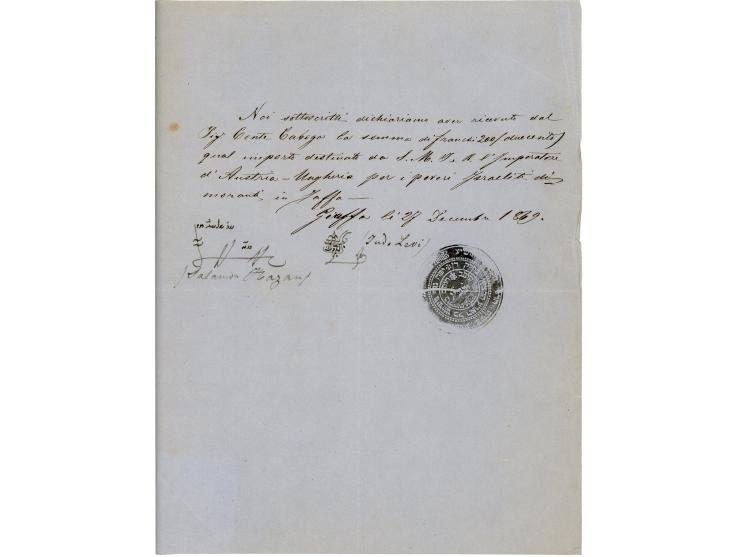 Noi sottoscritti dichiariamo aver ricevuto dal
Sigr Conte Caboga la somma di franchi 200 (duecento)
qual importo destinato da S. M. I. e R. l'Imperatore
d'Austria-Ungheria per i poveri Israeliti di-
moranti in Jaffa —
Giaffa li 27 Decembre 1869.
(Juda Levi)
(Salamon Hazan)